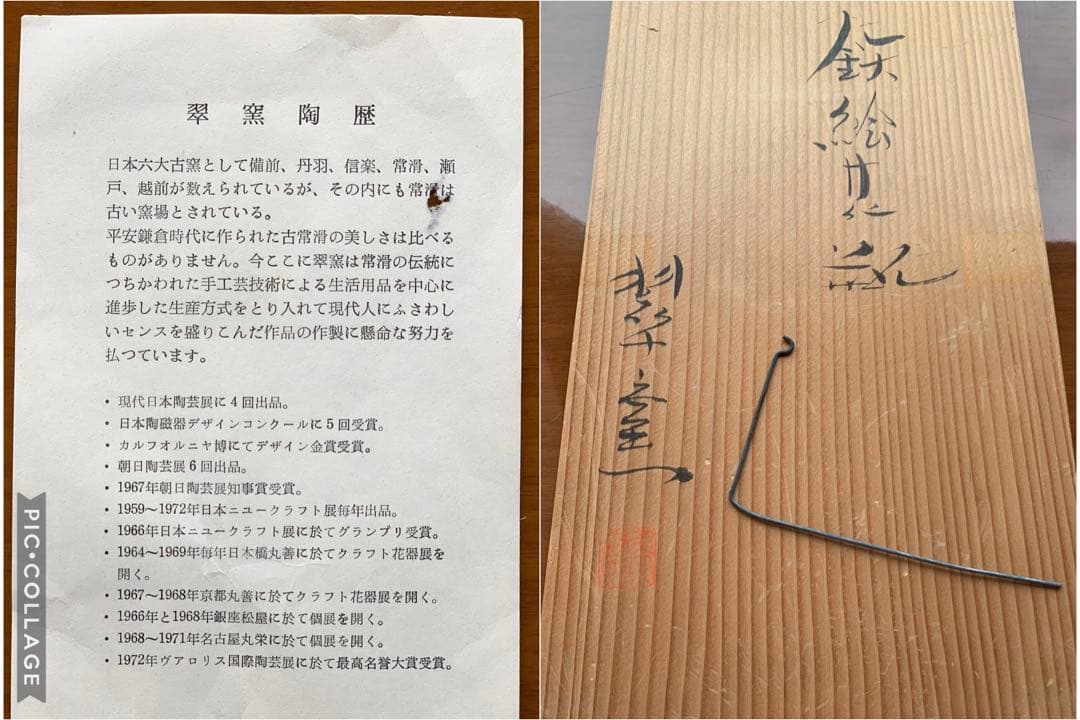 翠窯陶歴
日本六大古窯として備前、丹羽、信楽、常滑、瀬
戸、越前が数えられているが、その内にも常滑は
古い窯場とされている。
平安鎌倉時代に作られた古常滑の美しさは比べる
ものがありません。今ここに翠窯は常滑の伝統に
つちかわれた手工芸技術による生活用品を中心に
進歩した生産方式をとり入れて現代人にふさわし
いセンスを盛りこんだ作品の作製に懸命な努力を
払つています。
・現代日本陶芸展に4回出品。
・日本陶磁器デザインコンクールに5回受賞。
・カルフオルニヤ博にてデザイン金賞受賞。
・朝日陶芸展6回出品。
・1967年朝日陶芸展知事賞受賞。
・1959〜1972年日本ニユークラフト展毎年出品。
・1966年日本ニュークラフト展に於てグランプリ受賞。
・1964〜1969年毎年日本橋丸善に於てクラフト花器展を
開く。
・1967〜1968年京都丸善に於てクラフト花器展を開く。
・1966年と1968年銀座松屋に於て個展を開く。
・1968〜1971年名古屋丸栄に於て個展を開く。
・1972年ヴアロリス国際陶芸展に於て最高名誉大賞受賞。
PIC•COLLAGE
鉄絵花瓶
翠窯